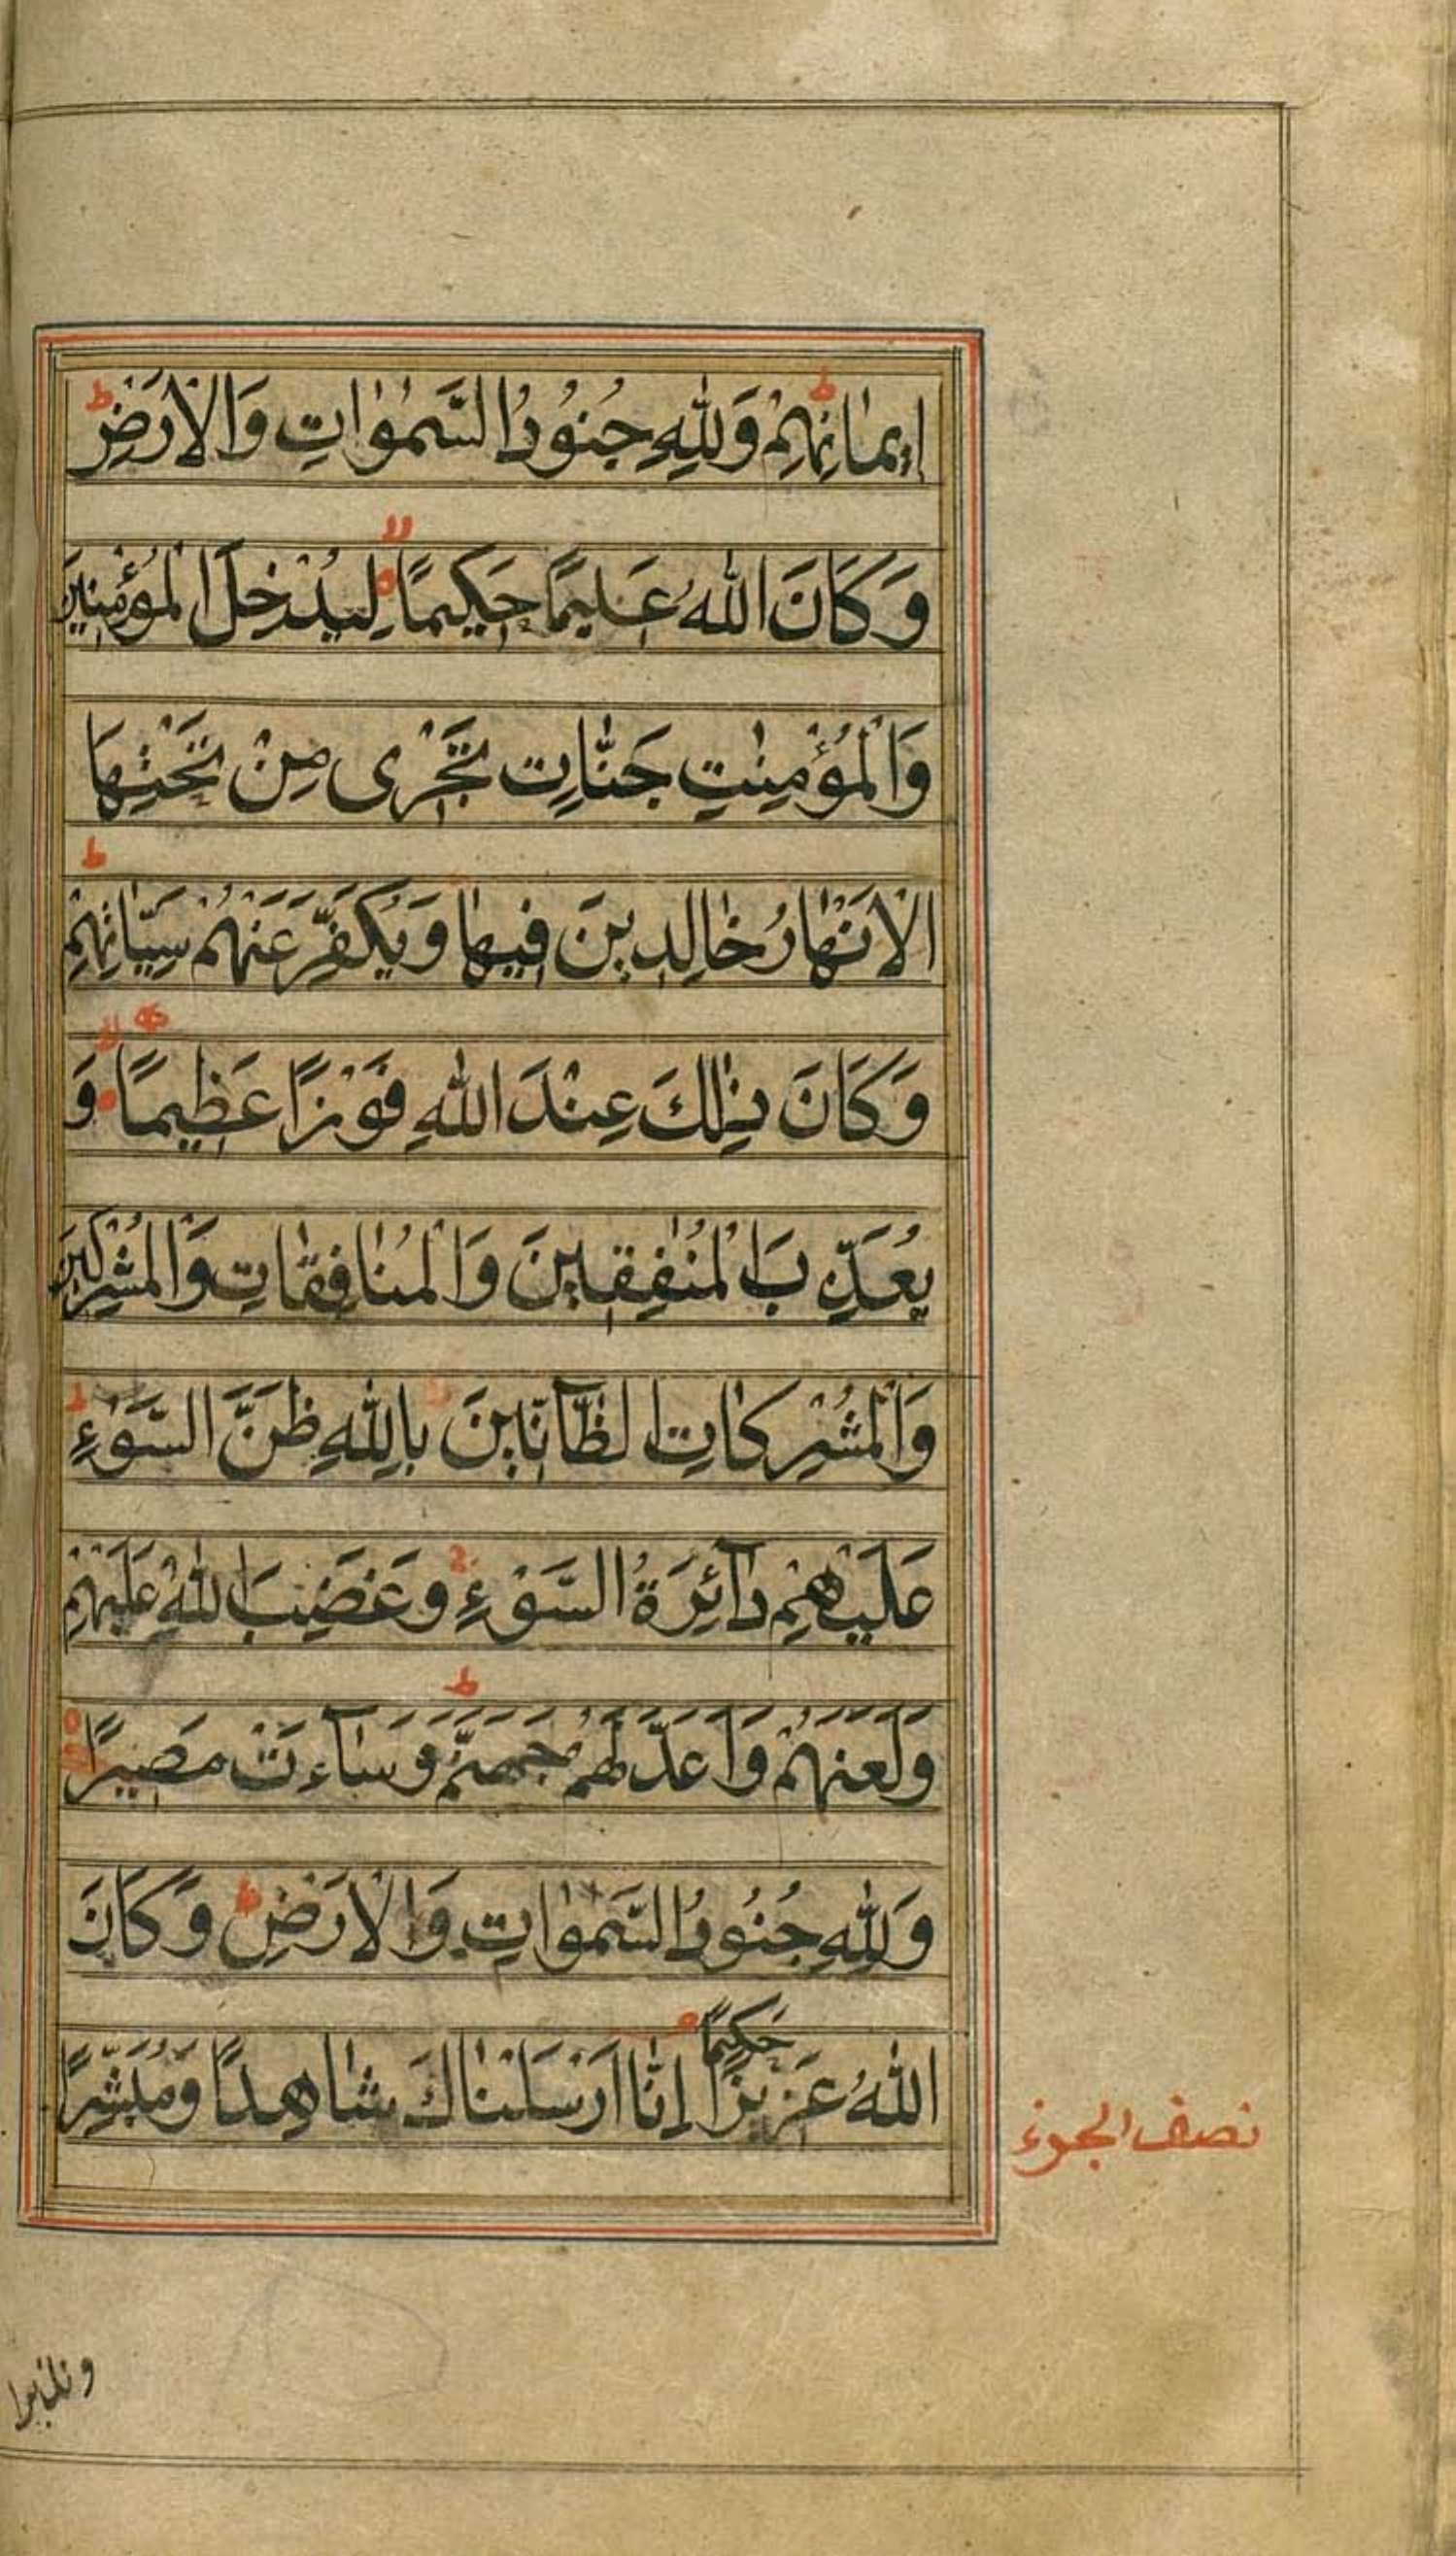 اِيمانِهِمْ وَلِلّٰهِ جُنُودُ السَّمٰوٰاتِ وَالْاَرْضِ ط
وَكَانَ اللّٰهُ عَلِيمًا حَكِيمًا لِيُدْخِلَ الْمُؤْمِنِينَ
وَالْمُؤْمِنٰتِ جَنّٰاتٍ تَجْرِى مِنْ تَحْتِهَا
الْاَنْهٰارُ خٰالِدِينَ فِيهٰا وَيُكَفِّرَ عَنْهُمْ سَيِّاتِهِمْ ط
وَكَانَ ذٰلِكَ عِنْدَ اللّٰهِ فَوْزًا عَظِيمًا وَ
يُعَذِّبَ الْمُنٰفِقِينَ وَالْمُنٰافِقٰاتِ وَالْمُشْرِكِينَ
وَالْمُشْرِكٰاتِ الظَّآنِّينَ بِاللّٰهِ ظَنَّ السَّوْءِ ط
عَلَيْهِمْ دَآئِرَةُ السَّوْءِ وَغَضِبَ اللّٰهُ عَلَيْهِمْ
وَلَعَنَهُمْ وَاَعَدَّ لَهُمْ جَهَنَّمَ ط وَسَآءَتْ مَصِيرًا
وَلِلّٰهِ جُنُودُ السَّمٰوٰاتِ وَالْاَرْضِ ط وَكَانَ
اللّٰهُ عَزِيزًا حَكِيمًا اِنّٰا اَرْسَلْنٰاكَ شٰاهِدًا وَمُبَشِّرًا
نصف الجزء
ونذيرا